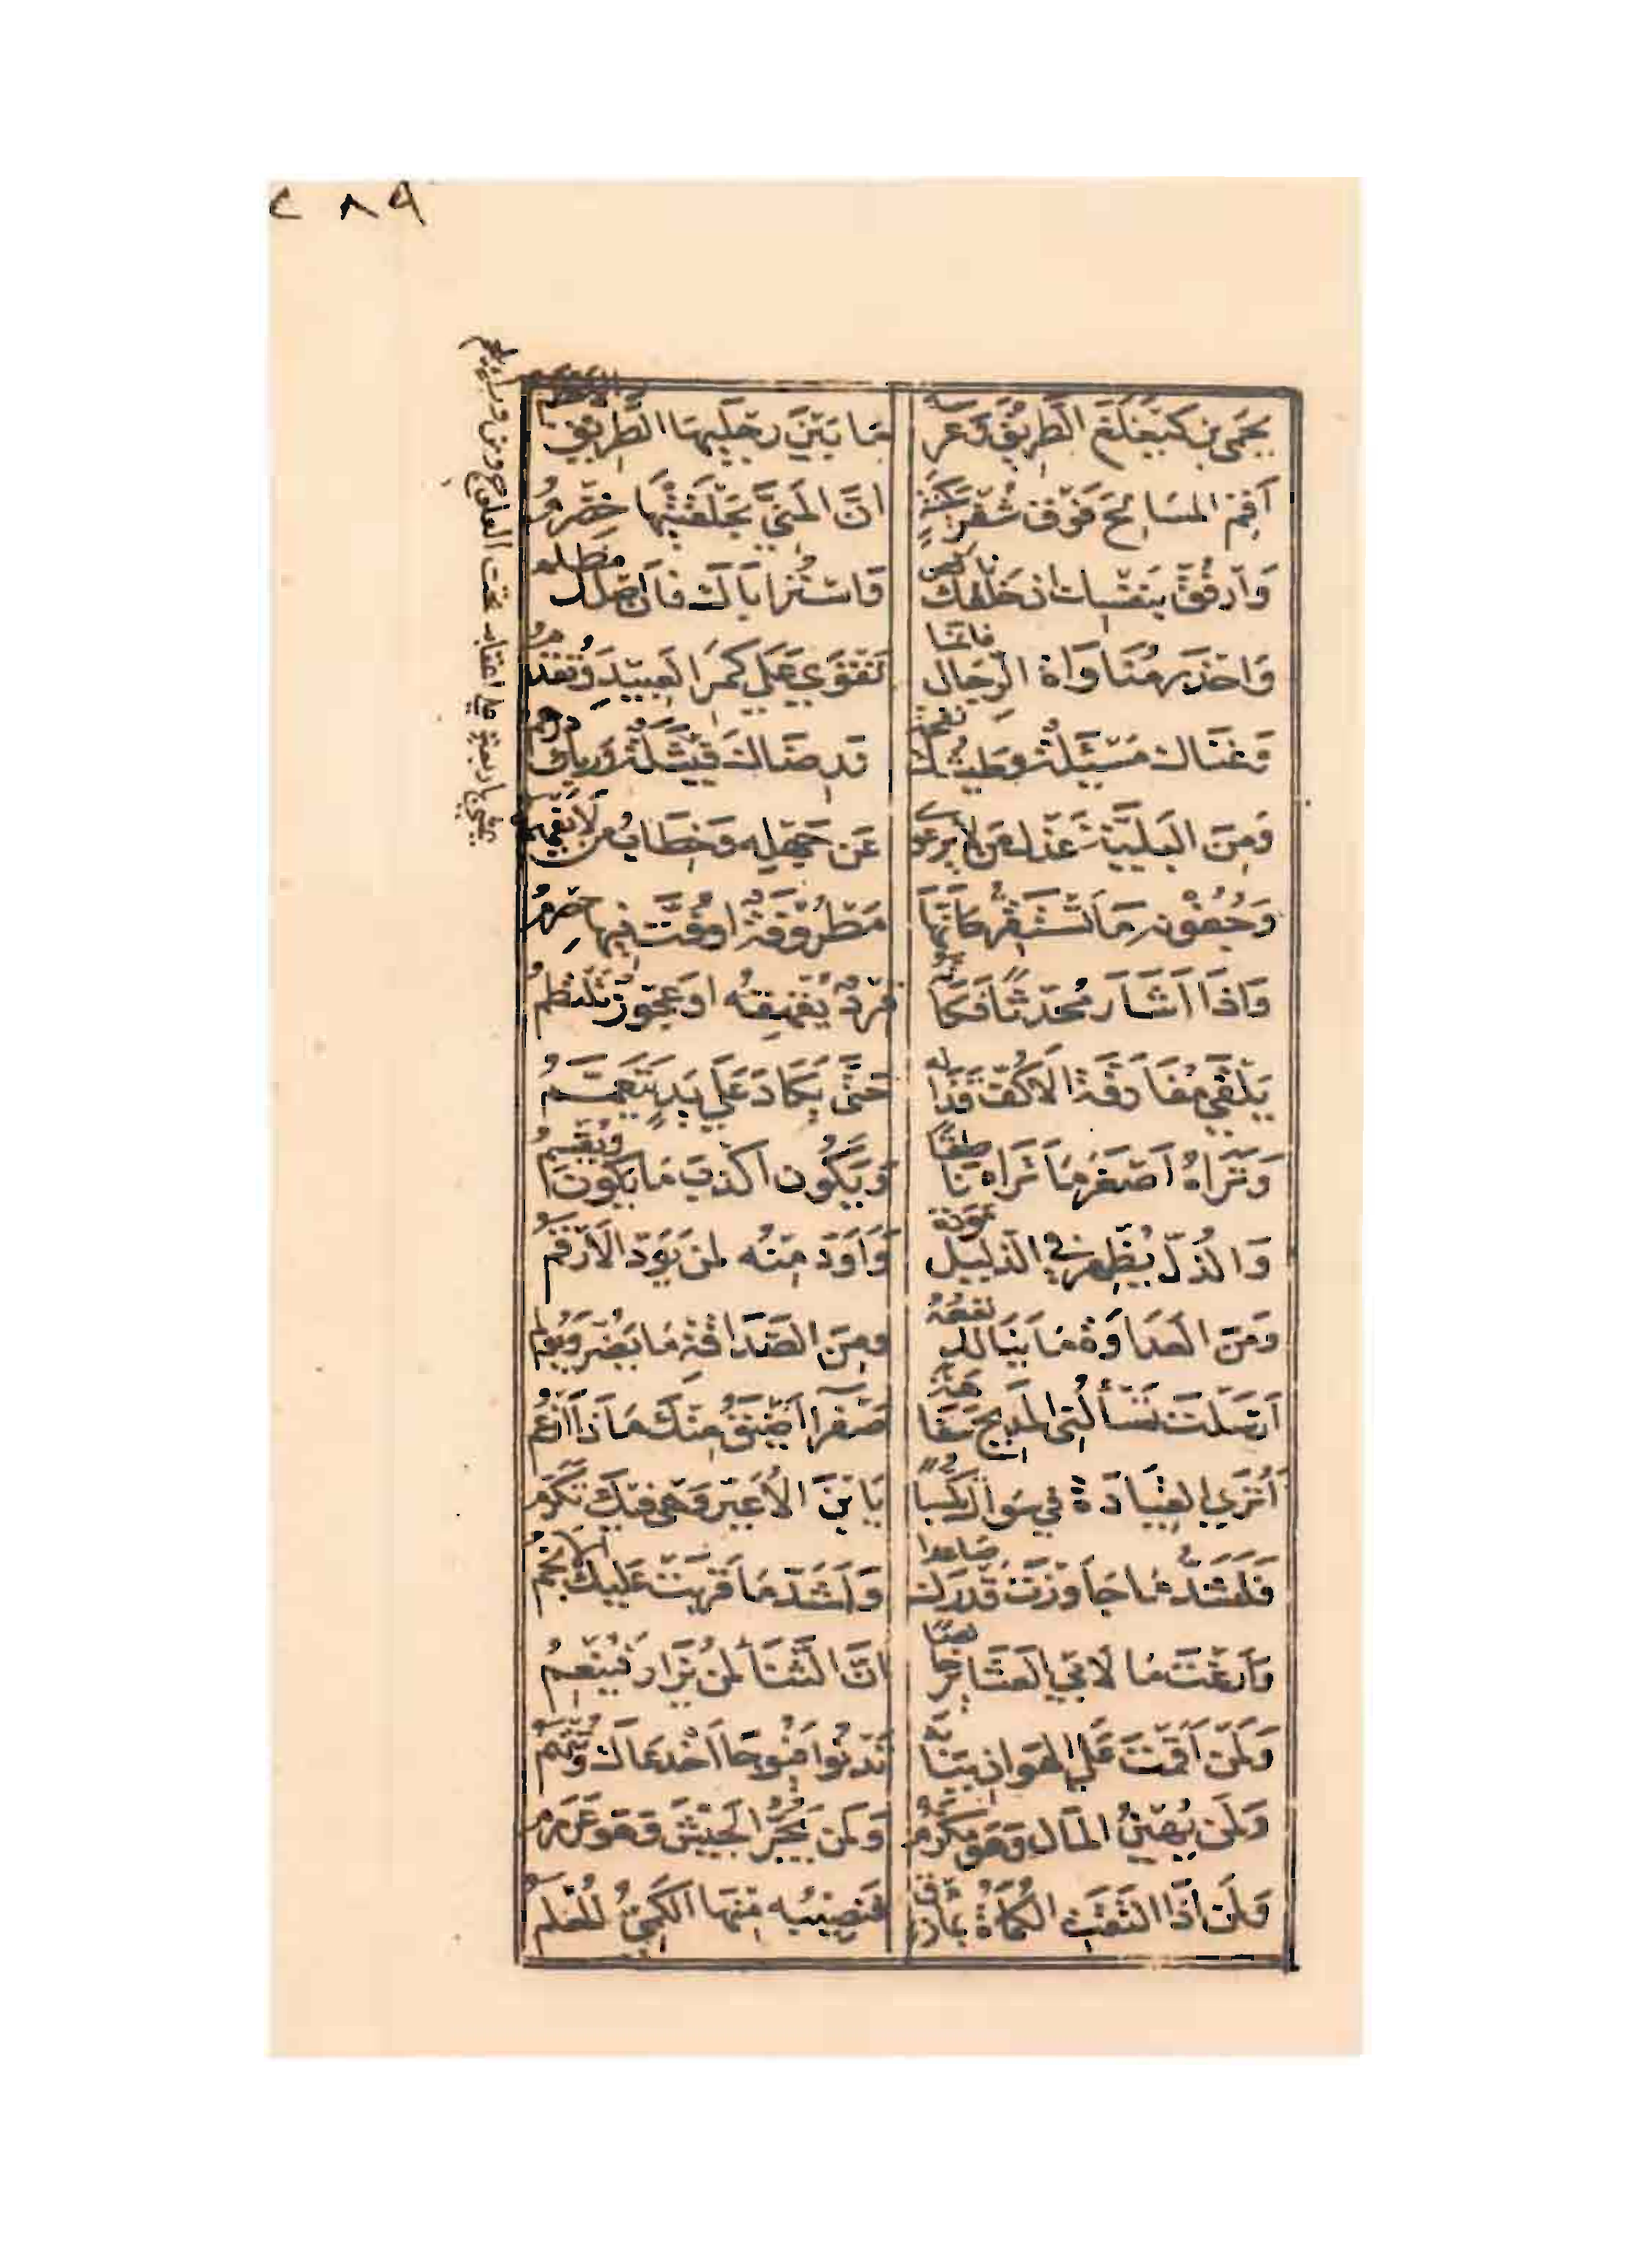 ٢٨٩
يحمى بن كيغلغ الطريق وعرسه ما بين رجليها الطريق الاعظم
أقم المسالح فوق شفر سكينة ان المنى بحلقتيها خضرم
وارفق بنفسك ان خلقك ناقص واستر اباك فان اصلك مظلم
واحذر مناواة الرجال فانما تقوى على كمر العبيد وتقدم
وغناك مسئلة وطيشك نفخة ورضاك فيشلة وربك درهم
ومن البلية عذل من لا يرعوى عن جهله وخطاب من لا يفهم
وجفونه ما تستقر كأنها مطروفة او فت فيها حصرم
واذا اشار محدثا فكأنه قرد يقهقه او عجوز تلطم
يقلى مفارقة الاكف قذاله حتى يكاد على يد يتعمم
وتراه اصغر ما تراه ناطقا ويكون اكذب ما يكون ويقسم
والذل يظهر في الذليل مودة واود منه لمن يود الارقم
ومن العداوة ما ينالك نفعه ومن الصداقة ما يضر ويولم
ارسلت تسألنى المديح سفاهة صفرآ اضيق منك ماذا ازعم
أترى القيادة في سواك تكسبا يا بن الأعير وهى فيك تكرم
فلشد ما جاوزت قدرك صاعدا ولشد ما قربت عليك الانجم
وارغت ما لابي العشائر خالصا ان الثنا لمن يزار فينعم
ولمن اقمت على الهوان ببابه تدنوا فيوجا اخدعاك وتنهم
ولمن يهين المال وهو مكرم ولمن يجر الجيش وهو عرمرم
ولمن اذا التقت الكماة بمازق فنصيبه منها الكمي المعلم
يمشى باربعة على اعقابه تحت العلوج ومن وراء يلجم